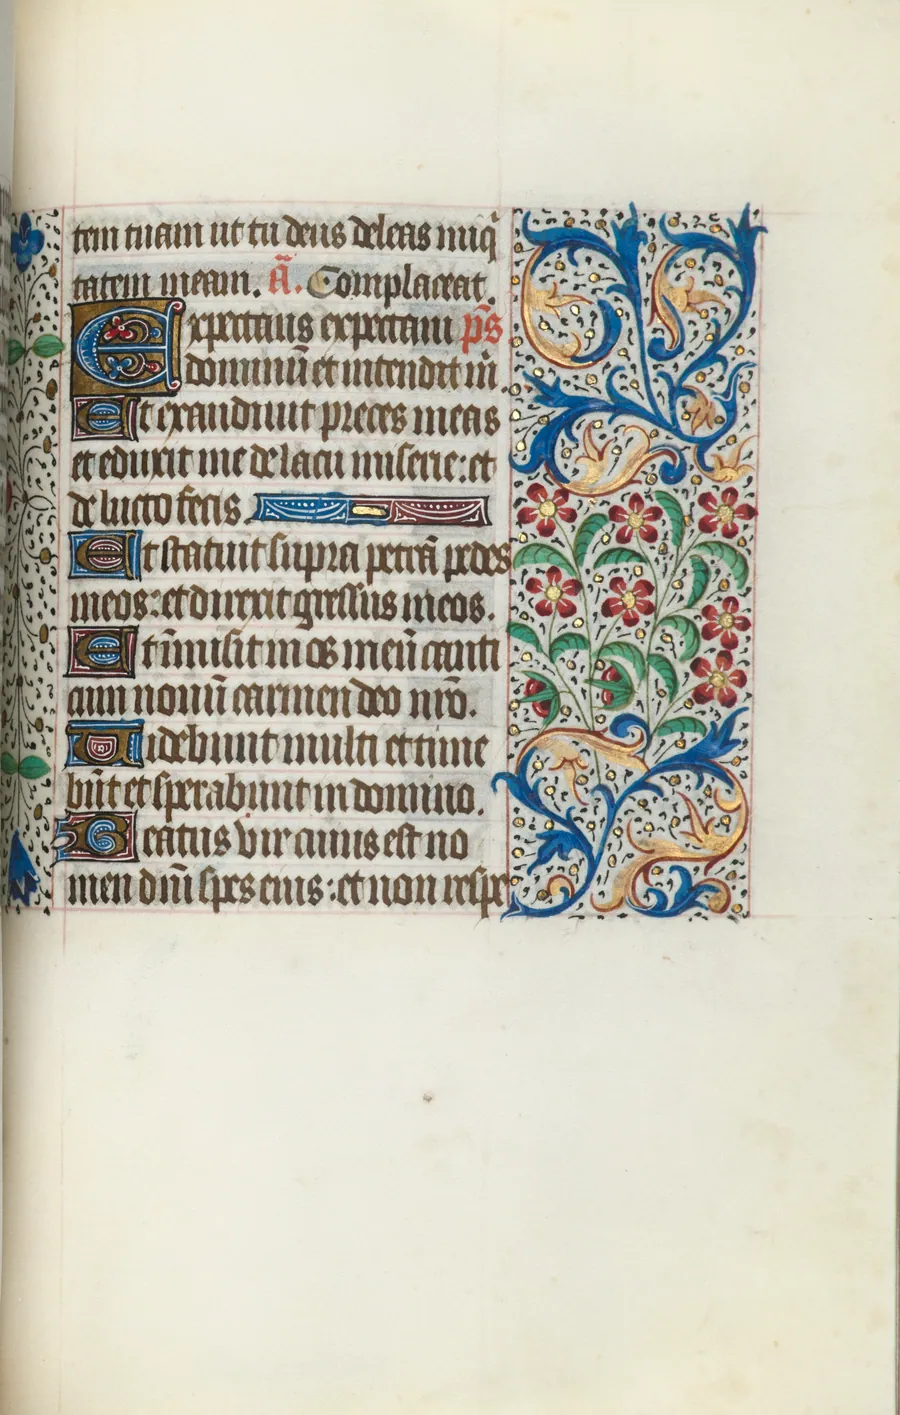 tem tuam ut tu deus deleas iniq̄
tatem meam. ā. Complaceat.
Expectans expectaui p̄s
dominū et intendit m̄.
Et exaudiuit preces meas
et eduxit me de lacu miserie: et
de lucto fecis.
Et statuit supra petrā pedes
meos: et direxit gressus meos.
Et īmisit in os meū canti
cum nouū carmen deo nr̄o.
Uidebunt multi et time
būt et sperabunt in domino.
Beatus vir cuius est no
men dn̄i spes eius: et non respe